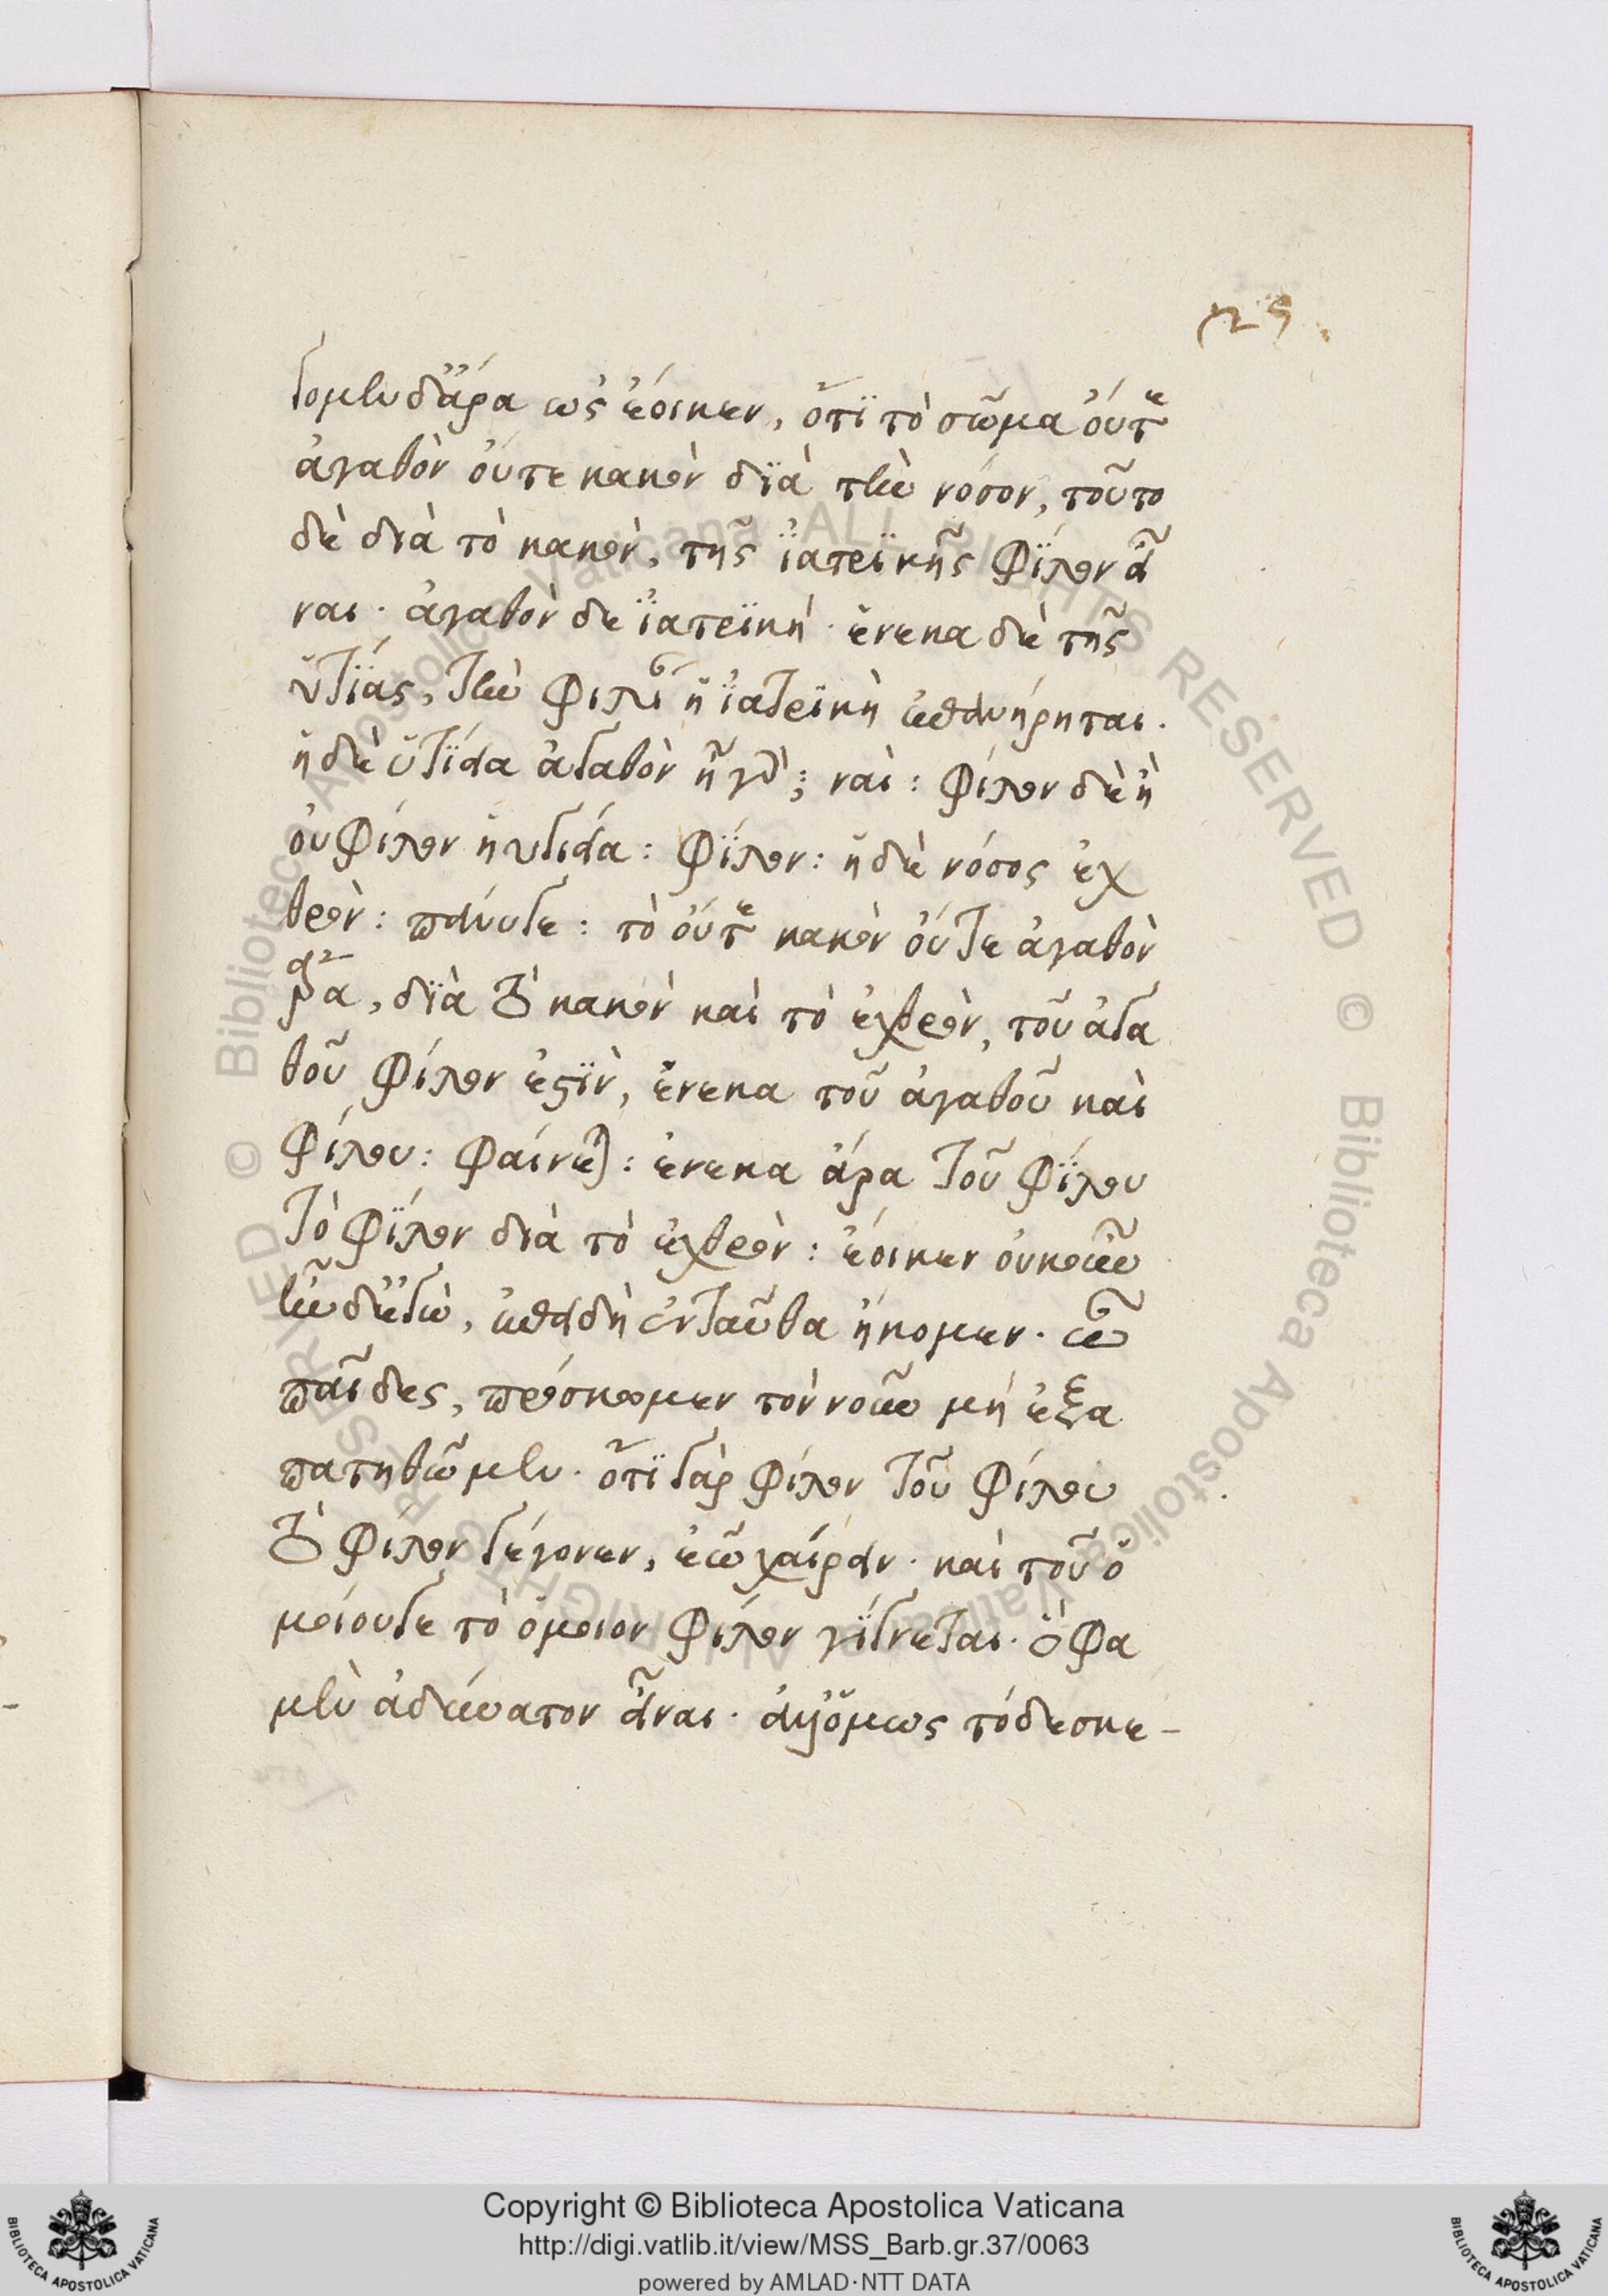 29
γομεν δ' ἄρα ὡς ἔοικεν, ὅτι τὸ σῶμα οὔτε
ἀγαθὸν οὔτε κακὸν διὰ τὴν νόσον, τοῦτο
δὲ διὰ τὸ κακὸν, τῆς ἰατρικῆς φίλον εἶ
ναι· ἀγαθὸν δὲ ἰατρικὴ· ἕνεκα δὲ τῆς
ὑγιείας, τὴν φιλίαν ἡ ἰατρικὴ ἐπανήρηται·
ἡ δὲ ὑγίεια ἀγαθὸν ἦ γάρ; ναί: φίλον δὲ ἢ
οὐ φίλον ἡ ὑγίεια: φίλον: ἡ δὲ νόσος ἐχ
θρόν: πάνυ γε: τὸ οὔτε κακὸν οὔτε ἀγαθὸν
ἄρα, διὰ τὸ κακὸν καὶ τὸ ἐχθρὸν, τοῦ ἀγα
θοῦ φίλον ἐστὶν, ἕνεκα τοῦ ἀγαθοῦ καὶ
φίλου: φαίνεται: ἕνεκα ἄρα τοῦ φίλου
τὸ φίλον διὰ τὸ ἐχθρόν: ἔοικεν οὐκοῦν
ἦν δ' ἐγὼ, ἐπειδὴ ἐνταῦθα ἥκομεν· ὦ
παῖδες, πρόσχωμεν τὸν νοῦν μὴ ἐξα
πατηθῶμεν· ὅτι γὰρ φίλον τοῦ φίλου
τὸ φίλον γέγονεν, ἐῶ χαίρειν· καὶ τοῦ ὁ
μοίου γε τὸ ὅμοιον φίλον γίγνεται· ὅ φα
μεν ἀδύνατον εἶναι· ἀλλ' ὅμως τόδε σκε-
© Biblioteca Apostolica Vaticana ALL RIGHTS RESERVED
© Biblioteca Apostolica Vaticana ALL RIGHTS RESERVED
Copyright © Biblioteca Apostolica Vaticana
http://digi.vatlib.it/view/MSS_Barb.gr.37/0063
powered by AMLAD·NTT DATA
BIBLIOTECA APOSTOLICA VATICANA
BIBLIOTECA APOSTOLICA VATICANA